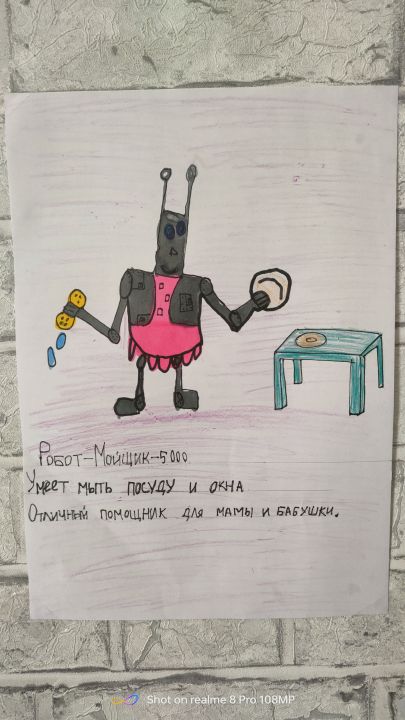 Робот-Мойщик-5000
Умеет мыть посуду и окна
Отличный помощник для мамы и бабушки.
Shot on realme 8 Pro 108MP